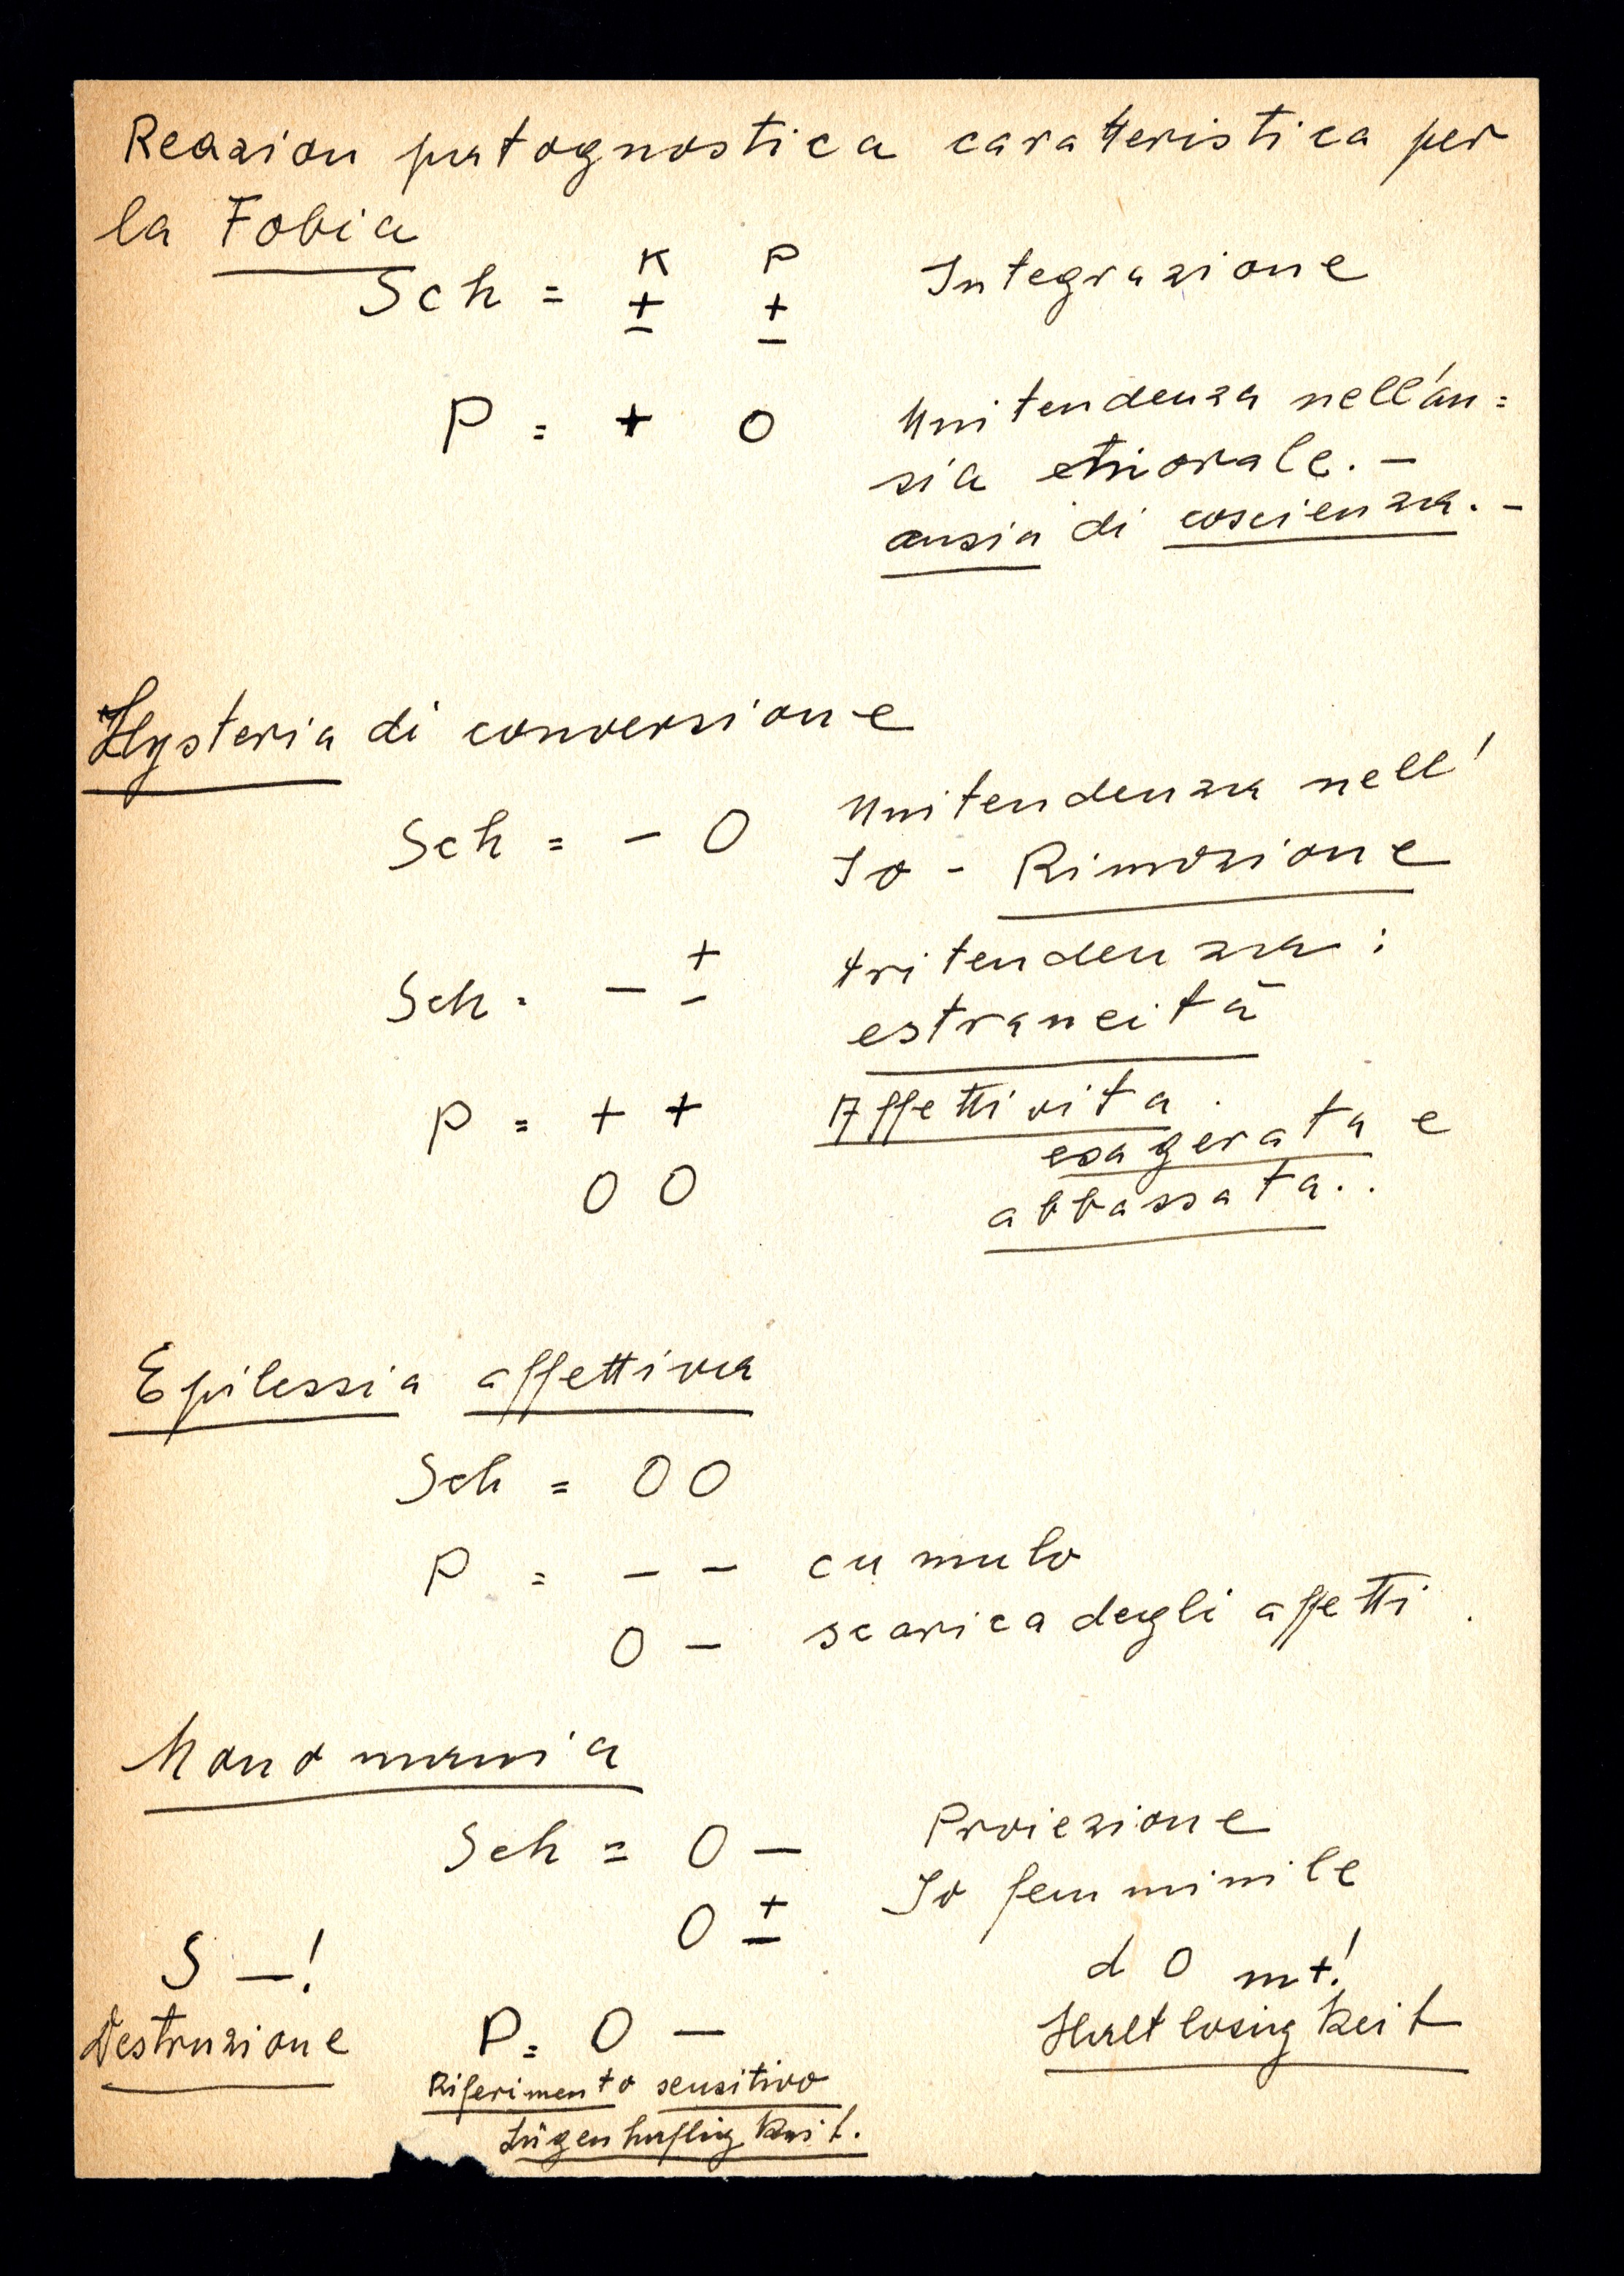 Reazion patognostica caratteristica per
la Fobia
K P
Sch = ± ± Integrazione
P = + 0 Unitendenza nell'an=
sia etmorale. —
ansia di coscienza. —
Hysteria di conversione
Sch = — 0 Unitendenza nell'
Io - Rimozione
Sch = — ± tritendenza :
estraneità
P = + + Affettivita.
esagerata e
0 0 abbassata..
Epilessia affettiva
Sch = 0 0
P = — — cumulo
0 — scarica degli affetti.
Monomania
Sch = 0 — Proiezione
0 ± Io femminile
S —! d 0 m+!
Destruzione P = 0 — Haltlosigkeit
Riferimento sensitivo
Lügenhaftigkeit.